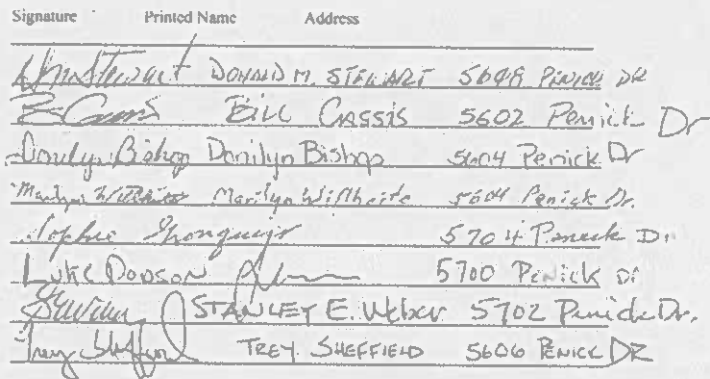 Signature Printed Name Address
DonStewart DONALD M. STEWART 5608 PENICK DR
BILL CASSIS 5602 Penick Dr
Danilyn Bishop Danilyn Bishop 5604 Penick Dr
Marilyn Marilyn Wilthaite 5604 Penick Dr.
Sophie 5704 Penick Dr
LUKE DODSON 5700 PENICK DR
STANLEY E. Weber 5702 Penick Dr.
Trey Sheffield TREY SHEFFIELD 5606 PENICK DR